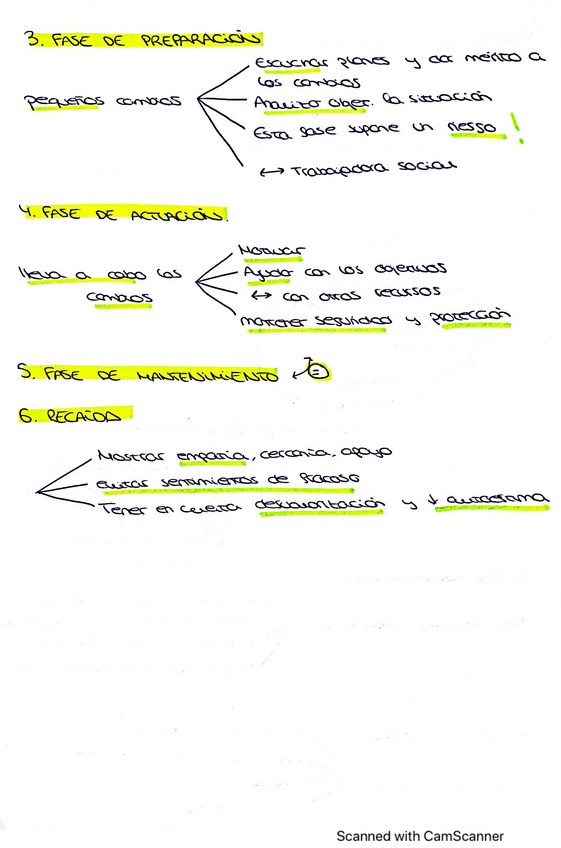 3. FASE DE PREPARACIÓN
pequeños cambios
Escuchar planes y dar mérito a
los cambios
Análisis ober. la situación
Esta fase supone un riesgo !
↔ Trabajadora social
4. FASE DE ACTUACIÓN.
lleva a cabo los
cambios
Motivar
Ayudar con los objetivos
↔ con otros recursos
mantener seguridad y protección
5. FASE DE MANTENIMIENTO
6. RECAÍDA
Mostrar empatía, cercanía, apoyo
evitar sentimientos de fracaso
Tener en cuenta desvalorización y ↓ autoestima
Scanned with CamScanner